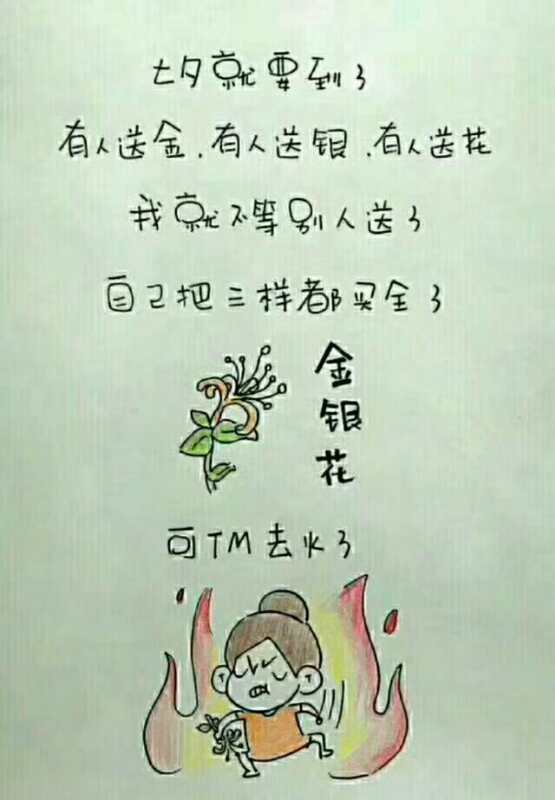 七夕就要到了
有人送金、有人送银、有人送花
我就不等别人送了
自己把三样都买全了
金
银
花
可TM去火了